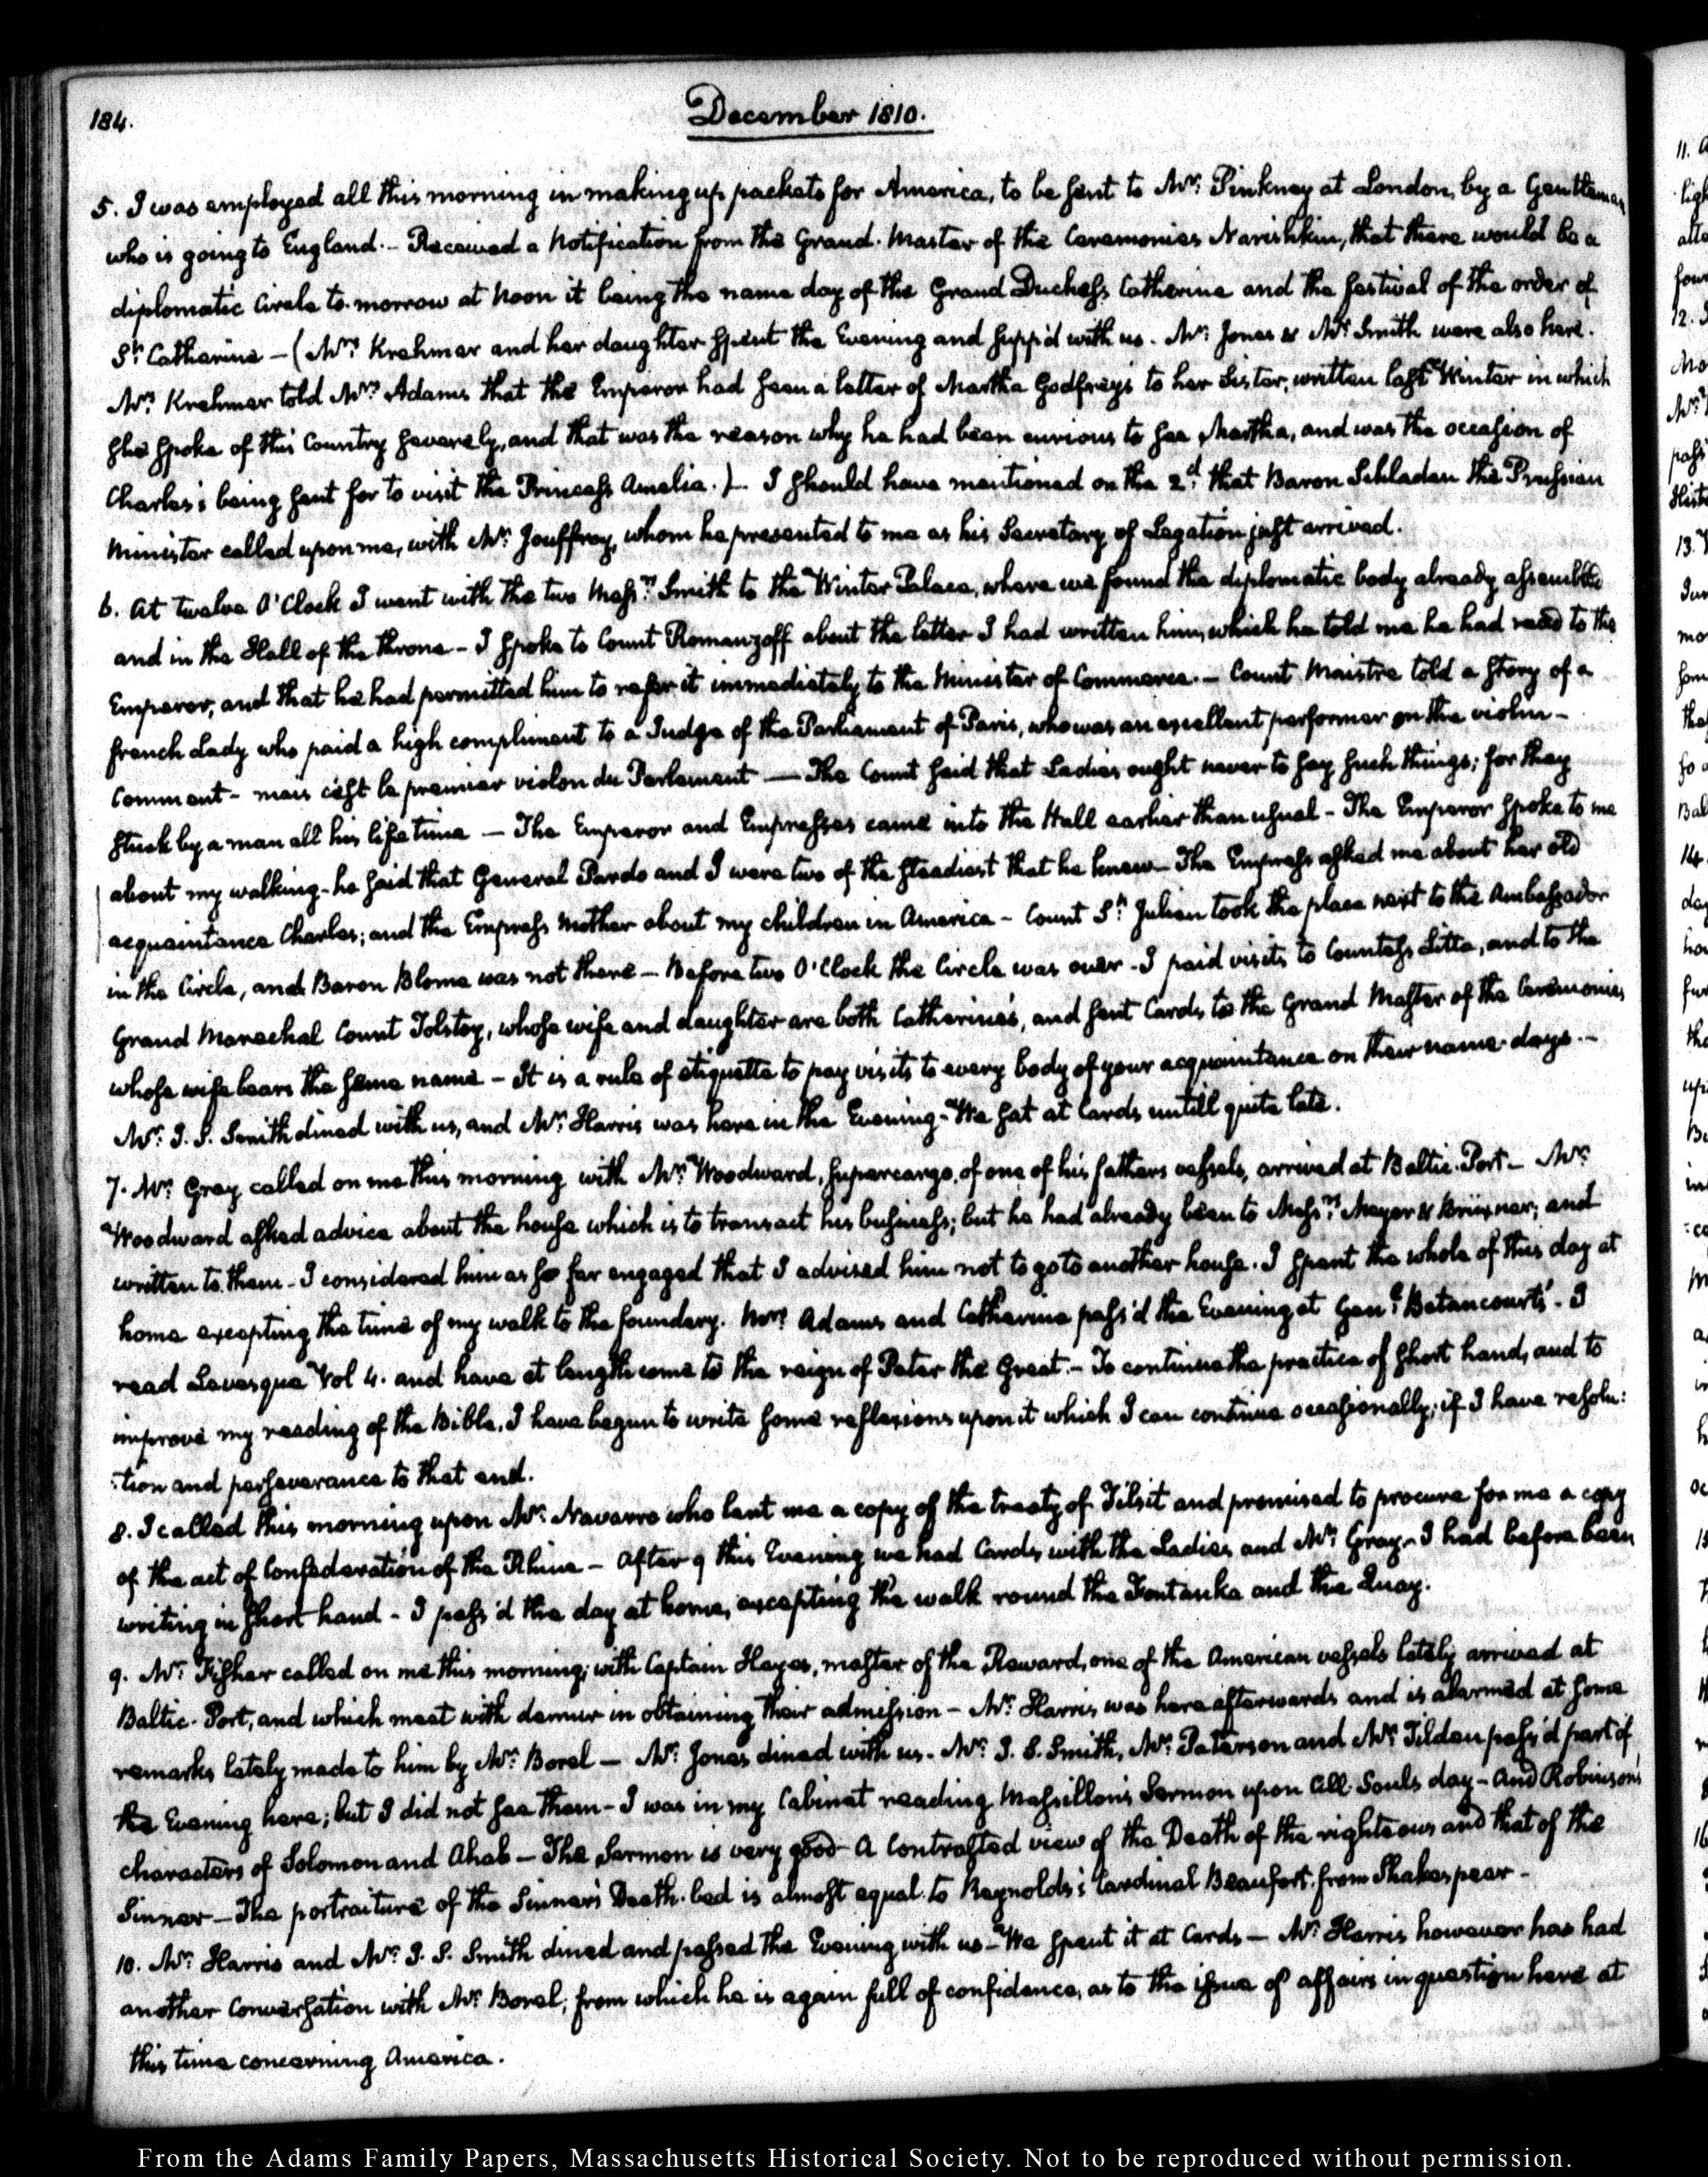 184.
December 1810.
5. I was employed all this morning in making up packets for America, to be sent to Mr: Pinkney at London, by a Gentleman
who is going to England. - Received a notification from the Grand. Master of the Ceremonies Narishkin, that there would be a
diplomatic Circle to-morrow at noon it being the name day of the Grand Duchess Catherine and the festival of the order of
St: Catharine - (Mrs: Krehmer and her daughter spent the Evening and supp'd with us. Mr: Jones & Mr: Smith were also here.
Mrs: Krehmer told Mrs: Adams that the Emperor had seen a letter of Martha Godfrey's to her Sister, written last Winter in which
she spoke of this Country severely, and that was the reason why he had been curious to see Martha, and was the occasion of
Charles's being sent for to visit the Princess Amelia.) - I should have mentioned on the 2d: that Baron Schladen the Prussian
Minister called upon me, with Mr: Jouffroy, whom he presented to me as his Secretary of Legation just arrived.
6. At twelve O'Clock I went with the two Messrs: Smith to the Winter Palace, where we found the diplomatic body already assembled
and in the Hall of the throne - I spoke to Count Romanzoff about the letter I had written him, which he told me he had read to the
Emperor, and that he had permitted him to refer it immediately to the Minister of Commerce. - Count Maistre told a story of a
french Lady who paid a high compliment to a Judge of the Parliament of Paris, who was an excellent performer on the violin -
Comment - mais c'est le premier violon du Parlement — The Count said that Ladies ought never to say such things; for they
stuck by a man all his life time — The Emperor and Empresses came into the Hall earlier than usual - The Emperor spoke to me
about my walking - he said that General Pardo and I were two of the steadiest that he knew - The Empress asked me about her old
acquaintance Charles; and the Empress Mother about my children in America - Count St: Julien took the place next to the Ambassador
in the Circle, and Baron Blome was not there - Before two O'Clock the Circle was over - I paid visits to Countess Litta, and to the
Grand Marechal Count Tolstoy, whose wife and daughter are both Catherines, and sent Cards to the Grand Master of the Ceremonies
whose wife bears the same name - It is a rule of etiquette to pay visits to every body of your acquaintance on their name-days. -
Mr: J. S. Smith dined with us, and Mr: Harris was here in the Evening - We sat at Cards untill quite late.
7. Mr: Gray called on me this morning with Mr: Woodward, Supercargo, of one of his fathers vessels, arrived at Baltic-Port - Mr:
Woodward asked advice about the house which is to transact his business; but he had already been to Messrs: Meyer & Brüxner; and
written to them - I considered him as so far engaged that I advised him not to go to another house. I spent the whole of this day at
home excepting the time of my walk to the foundery. Mrs: Adams and Catherine pass'd the Evening at Genl: Betancourt's - I
read Levesque Vol 4. and have at length come to the reign of Peter the Great. - To continue the practice of short hand, and to
improve my reading of the Bible, I have begun to write some reflexions upon it which I can continue occasionally; if I have resolu:
:tion and perseverance to that end.
8. I called this morning upon Mr: Navarro who lent me a copy of the treaty of Tilsit and promised to procure for me a copy
of the act of Confederation of the Rhine - After 9 this Evening we had Cards with the Ladies and Mr: Gray - I had before been
writing in short hand - I pass'd the day at home, excepting the walk round the Fontanka and the Quay.
9. Mr: Fisher called on me this morning; with Captain Hayes, master of the Reward, one of the American vessels lately arrived at
Baltic-Port, and which meet with demur in obtaining their admission - Mr: Harris was here afterwards and is alarmed at some
remarks lately made to him by Mr: Borel — Mr: Jones dined with us. Mr: J. S. Smith, Mr: Paterson and Mr: Tilden pass'd part of
the Evening here; but I did not see them - I was in my Cabinet reading Massillon's Sermon upon All-Souls day - And Robinson's
characters of Solomon and Ahab — The Sermon is very good - A Contrasted view of the Death of the righteous and that of the
Sinner - The portraiture of the Sinner's Death-bed is almost equal to Reynolds's Cardinal Beaufort from Shakespear -
10. Mr: Harris and Mr: J. S. Smith dined and passed the Evening with us - We spent it at Cards — Mr: Harris however has had
another Conversation with Mr: Borel, from which he is again full of confidence, as to the issue of affairs in question here at
this time concerning America.
From the Adams Family Papers, Massachusetts Historical Society. Not to be reproduced without permission.